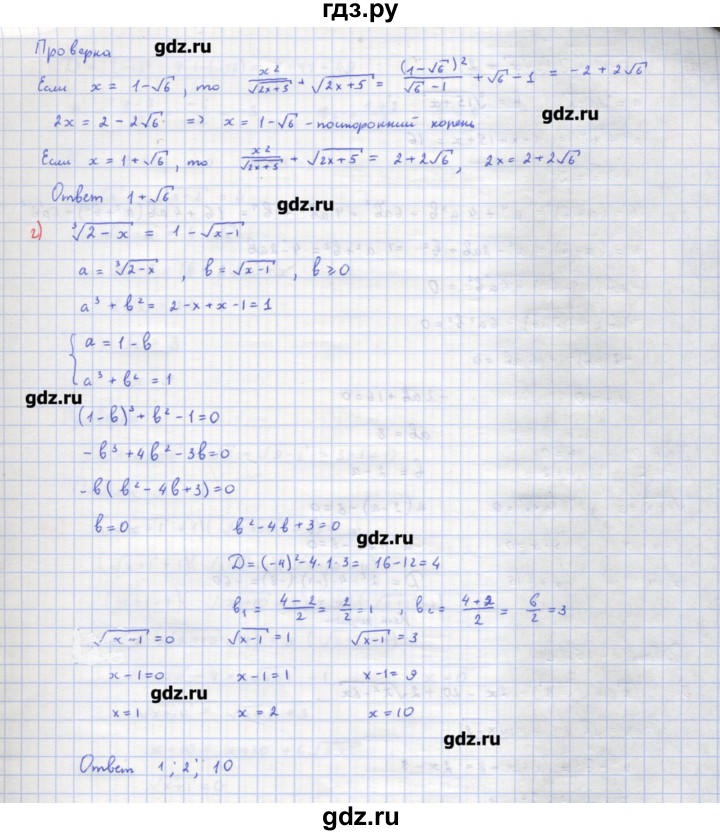 гдз.ру
Проверка gdz.ru
Если x = 1-√6, то x²/√(2x+5) + √(2x+5) = (1-√6)²/(√6-1) + √6-1 = -2+2√6
gdz.ru
2x = 2-2√6 => x = 1-√6 - посторонний корень
Если x = 1+√6, то x²/√(2x+5) + √(2x+5) = 2+2√6, 2x = 2+2√6
Ответ 1+√6 gdz.ru
г) ∛(2-x) = 1-√(x-1)
a = ∛(2-x), b = √(x-1), b ≥ 0
a³+b² = 2-x+x-1=1
{ a = 1-b
a³+b² = 1
gdz.ru
(1-b)³+b²-1=0
-b³+4b²-3b=0
-b(b²-4b+3)=0
b=0 b²-4b+3=0
gdz.ru
D=(-4)²-4·1·3= 16-12=4
b₁= (4-2)/2 = 2/2=1, b₂= (4+2)/2 = 6/2=3
√(x-1)=0 √(x-1)=1 √(x-1)=3
x-1=0 x-1=1 x-1=9
gdz.ru
x=1 x=2 x=10
gdz.ru
Ответ 1; 2; 10
gdz.ru